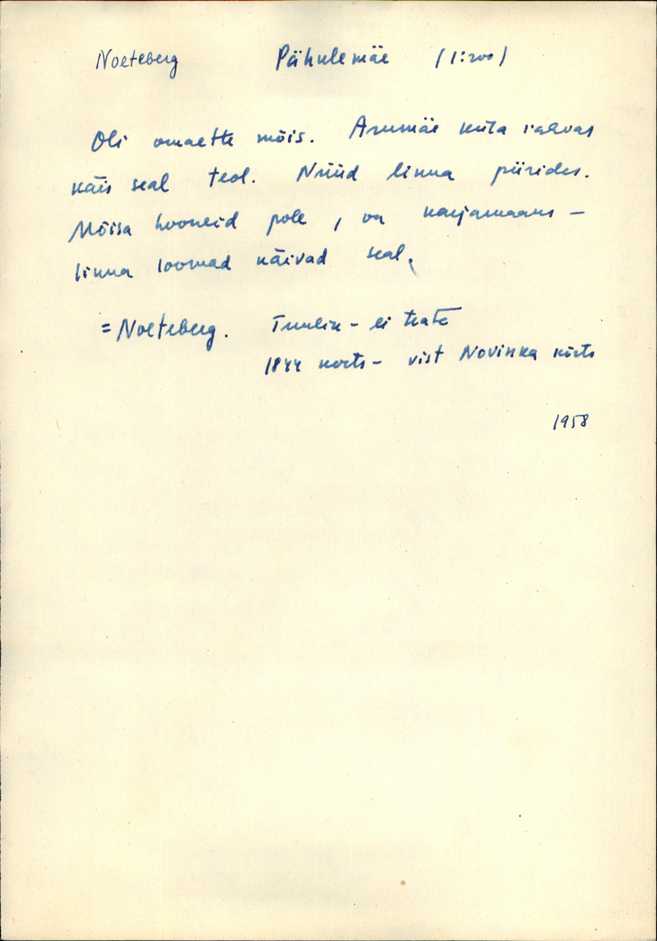 Noeteberg Pähulemäe (1:200)
Oli omaette mõis. Arumäe küla rahvas
käis seal teol. Nüüd linna piirides.
Mõisa hooneid pole, on karjamaaks -
linna loomad käivad seal.
= Noeteberg. Tuulik - ei teata
1844 korts - vist Novinka körts
1958